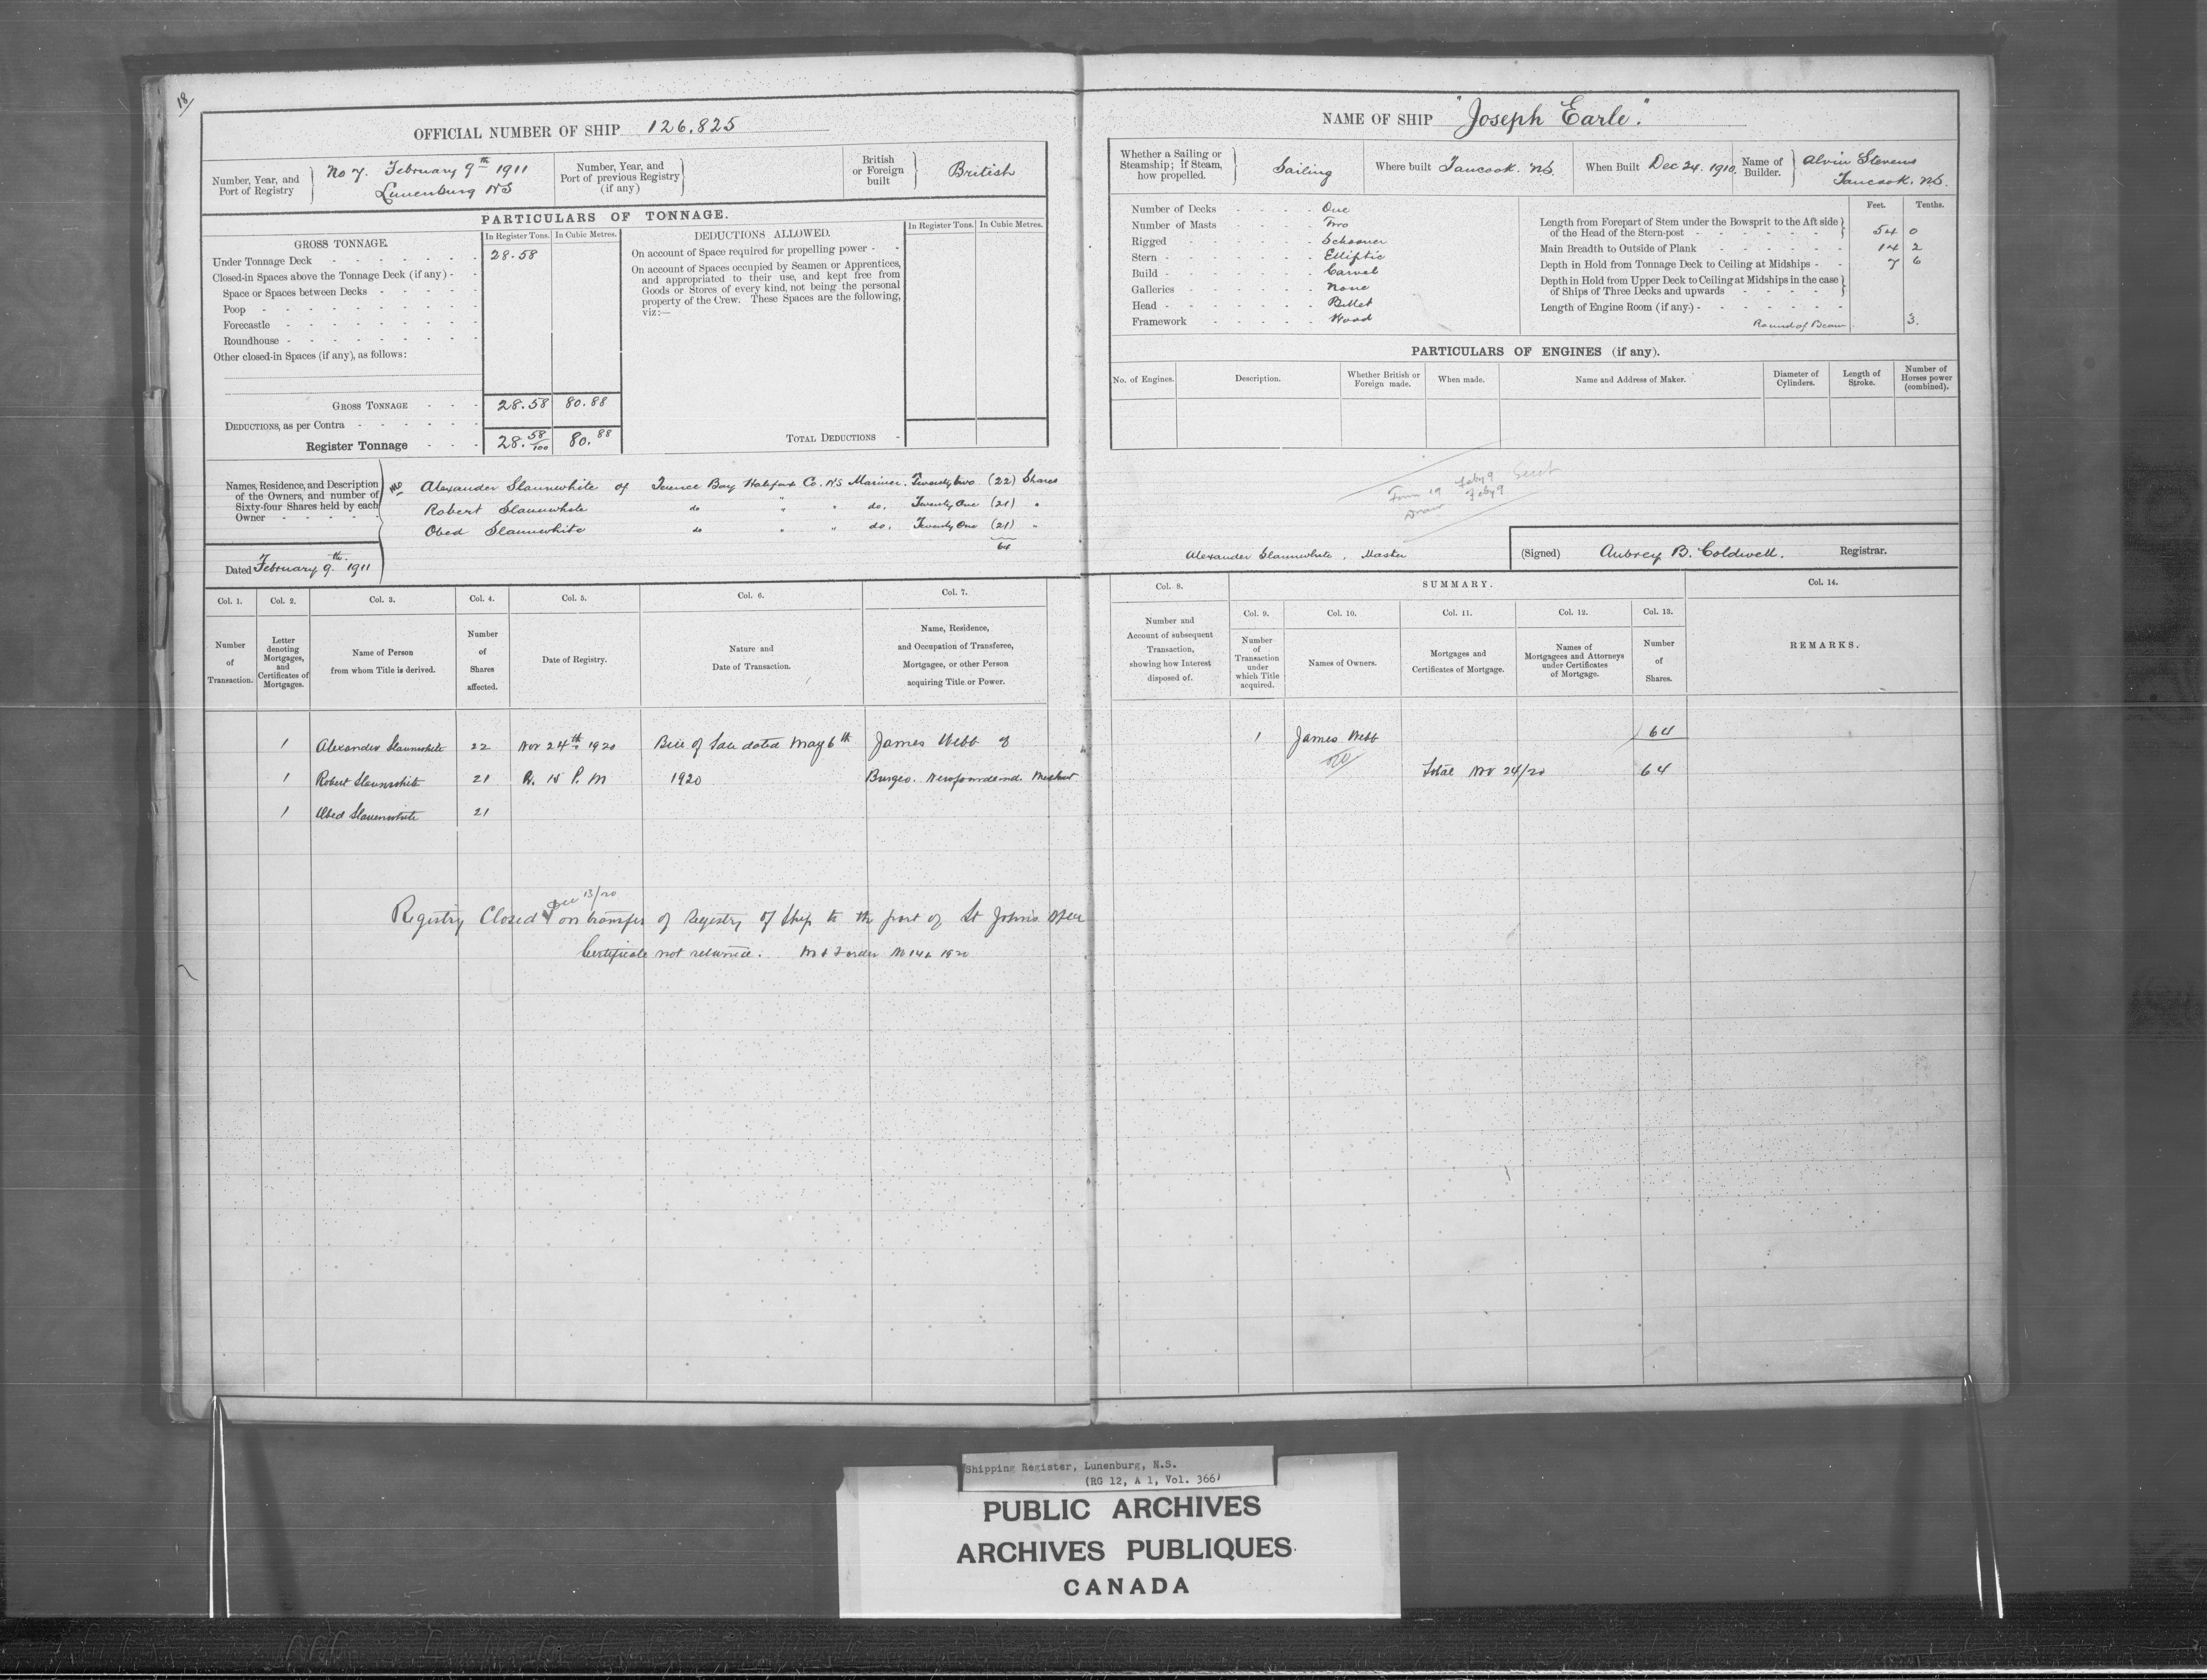 18/
OFFICIAL NUMBER OF SHIP 126.825
Number, Year, and Port of Registry
No 7. February 9th 1911
Lunenburg NS
Number, Year, and Port of previous Registry (if any)
British or Foreign built
British
PARTICULARS OF TONNAGE.
GROSS TONNAGE.
In Register Tons. In Cubic Metres.
DEDUCTIONS ALLOWED.
In Register Tons. In Cubic Metres.
Under Tonnage Deck 28.58
Closed-in Spaces above the Tonnage Deck (if any)
Space or Spaces between Decks
Poop
Forecastle
Roundhouse
Other closed-in Spaces (if any), as follows:
GROSS TONNAGE 28.58 80.88
DEDUCTIONS, as per Contra
Register Tonnage 28. 58/100 80.88
On account of Space required for propelling power
On account of Spaces occupied by Seamen or Apprentices,
and appropriated to their use, and kept free from
Goods or Stores of every kind, not being the personal
property of the Crew. These Spaces are the following,
viz:—
TOTAL DEDUCTIONS
Names, Residence, and Description
of the Owners, and number of
Sixty-four Shares held by each
Owner
Alexander Slaunwhite of Terence Bay Halifax Co. NS Mariner. Twenty two (22) Shares
Robert Slaunwhite do " " do. Twenty One (21) "
Obed Slaunwhite do " " do. Twenty One (21) "
64
Dated February 9th 1911
NAME OF SHIP "Joseph Earle."
Whether a Sailing or Steamship; if Steam, how propelled.
Sailing
Where built Tancook. NS.
When Built Dec 24. 1910.
Name of Builder.
Alvin Stevens
Tancook. NS.
Number of Decks One
Number of Masts Two
Rigged Schooner
Stern Elliptic
Build Carvel
Galleries None
Head Billet
Framework Wood
Feet. Tenths.
Length from Forepart of Stem under the Bowsprit to the Aft side
of the Head of the Stern-post 54 0
Main Breadth to Outside of Plank 14 2
Depth in Hold from Tonnage Deck to Ceiling at Midships 7 6
Depth in Hold from Upper Deck to Ceiling at Midships in the case
of Ships of Three Decks and upwards
Length of Engine Room (if any.)
Round of Beam 3.
PARTICULARS OF ENGINES (if any).
No. of Engines. Description. Whether British or Foreign made. When made. Name and Address of Maker. Diameter of Cylinders. Length of Stroke. Number of Horses power (combined).
Form 19 Feby 9 Sent
Feby 9
Alexander Slaunwhite, Master
(Signed) Aubrey B. Coldwell. Registrar.
Col. 1. Col. 2. Col. 3. Col. 4. Col. 5. Col. 6. Col. 7.
Number of Transaction.
Letter denoting Mortgages, and Certificates of Mortgages.
Name of Person from whom Title is derived.
Number of Shares affected.
Date of Registry.
Nature and Date of Transaction.
Name, Residence, and Occupation of Transferee, Mortgagee, or other Person acquiring Title or Power.
Col. 8. SUMMARY. Col. 14.
Col. 9. Col. 10. Col. 11. Col. 12. Col. 13.
Number and Account of subsequent Transaction, showing how Interest disposed of.
Number of Transaction under which Title acquired.
Names of Owners.
Mortgages and Certificates of Mortgage.
Names of Mortgagees and Attorneys under Certificates of Mortgage.
Number of Shares.
REMARKS.
1 Alexander Slaunwhite 22 Nov 24th 1920 Bill of Sale dated May 6th James Webb of
1 Robert Slaunwhite 21 P. M 1920 Burgeo. Newfoundland.
1 Obed Slaunwhite 21
1 James Webb 64
Total Nov 24/20 64
Dec 13/20
Registry Closed on transfer of Registry of Ship to the port of St John's
Certificate not returned. 1920
Shipping Register, Lunenburg, N.S.
(RG 12, A 1, Vol. 366)
PUBLIC ARCHIVES
ARCHIVES PUBLIQUES
CANADA